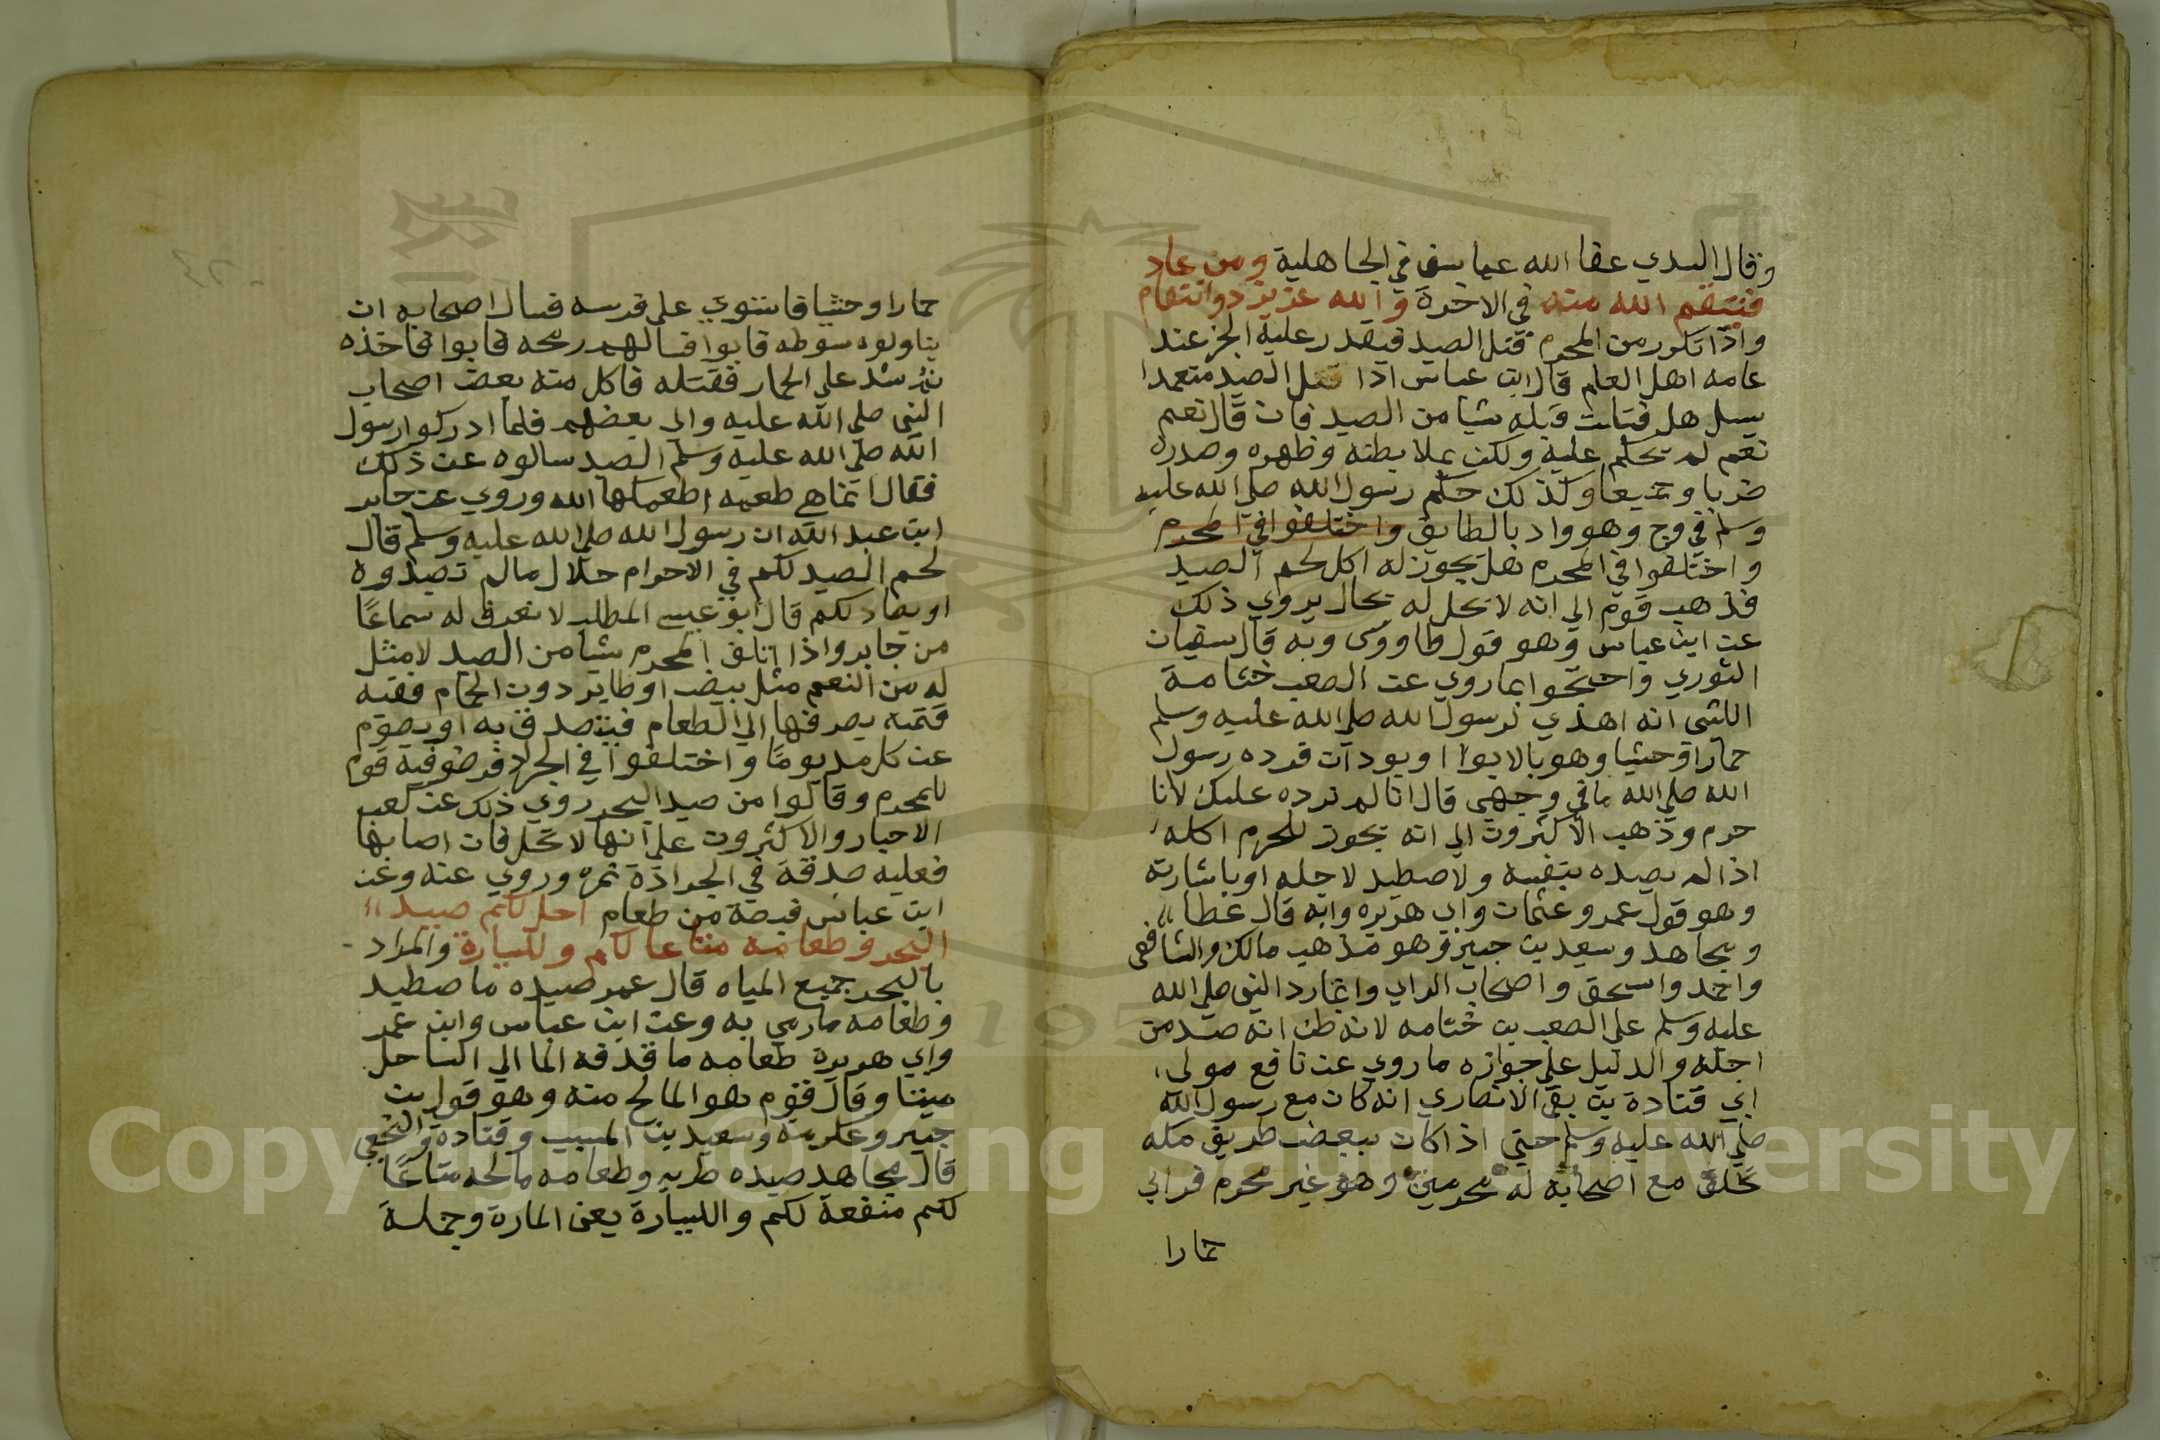 وقال السدي عفا الله عما سلف في الجاهلية ومن عاد
فينتقم الله منه في الاخرة والله عزيز ذوانتقام
واذا تكرر من المحرم قتل الصيد فيقدر عليه الجز عند
عامه اهل العلم قال ابن عباس اذا قتل الصيد متعمدا
يسل هل قتلت قبله شيا من الصيد فان قال نعم
نعم لم يحكم عليه ولكن يملا بطنه وظهره وصدره
ضربا وجيعا وكذلك حكم رسول الله صلى الله عليه
وسلم في وج وهو واد بالطايف واختلفوا في المحرم
واختلفوا في المحرم هل يجوز له اكل لحم الصيد
فذهب قوم الي انه لا يحل له بحال يروي ذلك
عن ابن عباس وهو قول طاووس وبه قال سفيان
الثوري واحتجوا بما روي عن الصعب خثامة
الليثي انه اهدي لرسول الله صلي الله عليه وسلم
حمارا وحشيا وهو بالابوا او بودان فرده رسول
الله صلي الله ما في وجهي قال انا لم نرده عليك لانا
حرم وذهب الاكثرون الي انه يجوز للمحرم اكله
اذا لم يصيده بنفسه ولاصطيد لاجله او باشارته
وهو قول عمر وعثمان وابي هريره وابه قال عطا
ومجاهد وسعيد بن جبير وهو مذهب مالك والشافعي
واحمد واسحق واصحاب الراي وانما رد النبي صلي الله
عليه وسلم علي الصعب بن خثامه لانه ظن انه صيد من
اجله والدليل علي جوازه ما روي عن نافع مولي
ابي قتادة بن بقي الانصاري انه كان مع رسول الله
صلي الله عليه وسلم حتي اذا كان ببعض طريق مكه
تخلف مع اصحابه له محرمين وهو غير محرم فراي
حمارا
حمارا وحشيا فاستوي علي فرسه فسال اصحابه ان
يناولوه سوطه فابوا فسالهم رمحه فابوا فاخذه
ثم شد علي الحمار فقتله فاكل منه بعض اصحاب
النبي صلي الله عليه وابي بعضهم فلما ادركوا رسول
الله صلي الله عليه وسلم الصد سالوه عن ذلك
فقال انما هي طعمه اطعمكها الله وروي عن جابر
ابن عبد الله ان رسول الله صلي الله عليه وسلم قال
لحم الصيد لكم في الاحرام حلال مالم تصيدوه
او يصاد لكم قال ابو عيسي المطلب لا نعرف له سماعًا
من جابر واذا اتلف المحرم شيا من الصيد لامثل
له من النعم مثل بيض او طاير دون الحمام ففيه
قتمه يصرفها الي الطعام فيتصدق به او يصوم
عن كل مد يومًا واختلفوا في الجراد فرضو فيه قوم
للمحرم وقالوا من صيد البحر روي ذلك عن كعب
الاحبار والاكثرون علي انها لا تحل فان اصابها
فعليه صدقة في الجرادة تمره وروي عنه وعن
ابن عباس قبضة من طعام احل لكم صيد
البحر وطعامه متاعا لكم وللسيارة والمراد
بالبحر جميع المياه قال عمر صيده ماصطيد
وطعامه مارمي به وعن ابن عباس وابن عمر
وابي هريرة طعامه ما قذفه الما الي الساحل
ميتا وقال قوم هو المالح منه وهو قول بن
جبير وعكرمه وسعيد بن المسيب وقتادة والنخعي
قال مجاهد صيده طريه وطعامه مالحه متاعًا
لكم منفعة لكم والسيارة يعني المارة وجملة
Copyright © King Saud University
195